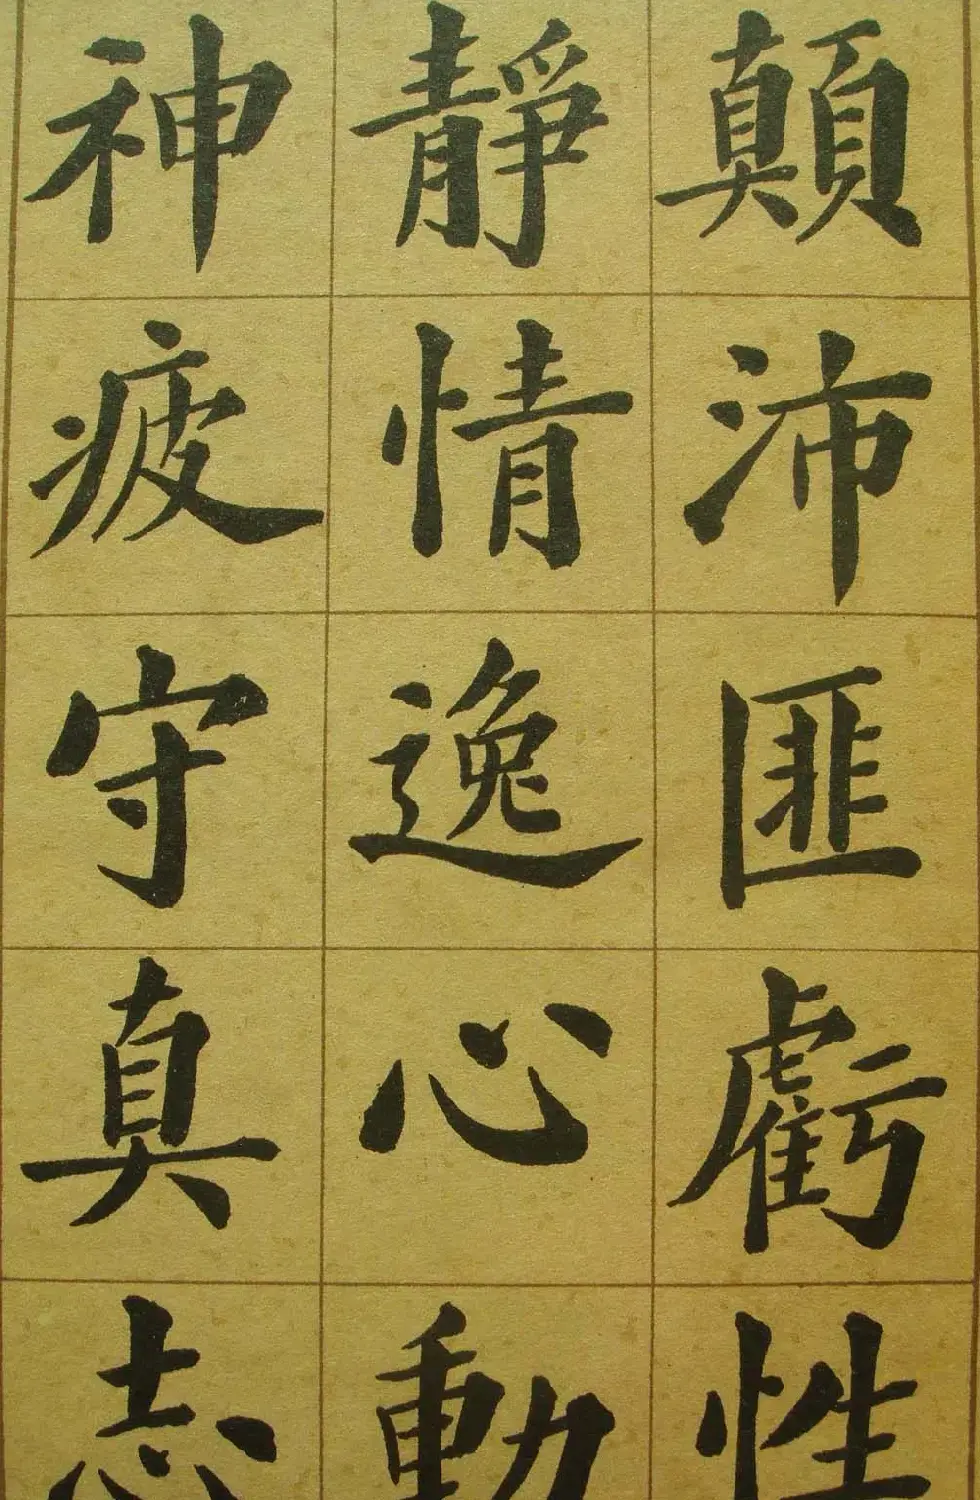 顛沛匪虧性
靜情逸心動
神疲守真志